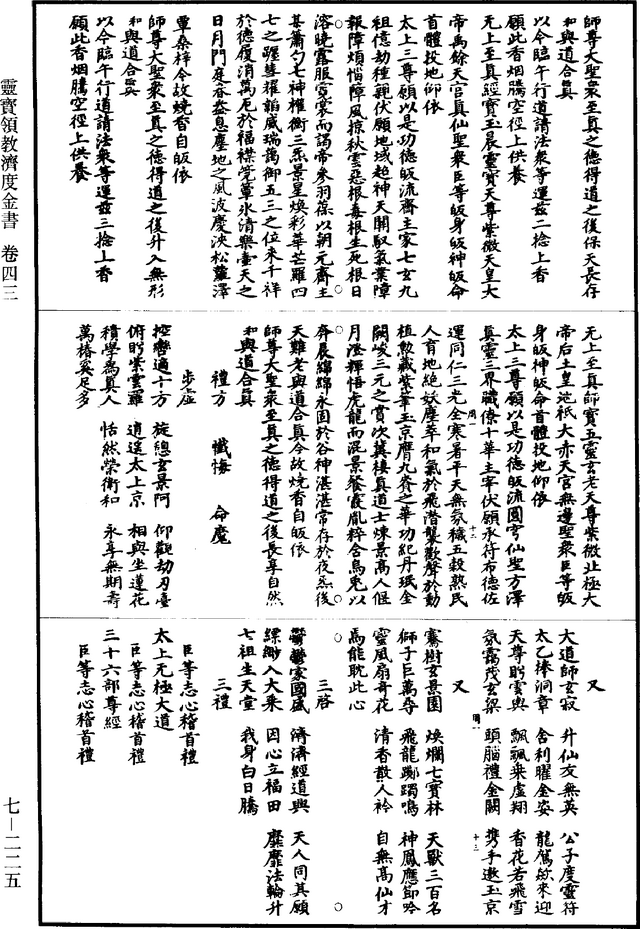 靈寶領教濟度金書 卷四三
七—二二五
師尊大聖衆至真之德得道之後保天長存
和與道合真
以今臨午行道請法衆等運茲二捻上香
願此香烟騰空徑上供養
无上至真經寶玉晨靈寶天尊紫微天皇大
帝禹餘天宮真仙聖衆臣等皈身皈神皈命
首體投地仰依
太上三尊願以是功德皈流齋主家七玄九
祖億劫種親伏願地域超神天關馭氣業障
報障煩惱障風掠秋雲惡根毒根生死根日
溶曉露服霓裳而謁帝參羽葆以朝元齋主
七之躔彗耀韜威瑞藹御五三之位来千祥
於德履消萬厄於福
日月門庭
覃桑梓今故燒香自皈依
師尊大聖衆至真之德得道之後升入無形
和與道合真
以今臨午行道請法衆等運茲三捻上香
願此香烟騰空徑上供養
无上至真師寶五靈玄老天尊紫微北極大
帝后土皇地祇大赤天宮無邊聖衆臣等皈
身皈神皈命首體投地仰依
太上三尊願以是功德皈流圓穹仙聖方澤
真靈三界職僚十華主宰伏願永符布德佐
運同仁三光全寒暑平天無氛穢五穀熟民
人育地絕妖塵萃和氣於飛潛襲歡聲於動
植勲藏紫筆玉京膺九賚之華功紀丹珉金
闕峻三元之賞次冀棲真道士煉景高人促
月澄輝悟虎龍而混景餐霞胤粹合烏兔以
奔晨綿綿永固於谷神湛湛常存於夜炁後
天難老與道合真今故燒香自皈依
師尊大聖衆至真之德得道之後長享自然
和與道合真
禮方 懺悔 命魔
步虛
控轡適十方 旋總玄景阿 仰觀劫刃臺
俯盻紫雲羅 逍遙太上京 相與坐蓮花
積學爲真人 恬然榮衛和 永享無期壽
萬椿奚足多
又
大道師玄寂 升仙友無英 公子度靈符
太乙捧洞章 舍利曜金姿 龍駕欻來迎
天尊盻雲輿 飄飄乗虛翔 香花若飛雪
氛靄茂玄梁 頭腦禮金闕 携手遨玉京
又
騫樹玄景園 煥爛七寶林 天獸三百名
獅子巨萬尋 飛龍躑躅鳴 神鳳應節吟
靈風扇奇花 清香散人衿 自無高仙才
焉能耽此心
三啓
鬱鬱家國盛 濟濟經道興 天人同其願
縹緲入大乘 因心立福田 靡靡法輪升
七祖生天堂 我身白日騰
三禮
臣等志心稽首禮
太上无極大道
臣等志心稽首禮
三十六部尊經
臣等志心稽首禮